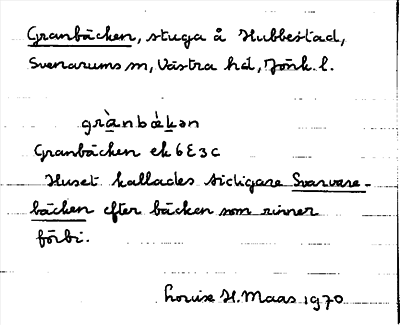 Granbäcken, stuga å Hubbestad,
Svenarums sn, Västra hd, Jönk. l.
grànbœ̀kən
Granbäcken ek 6E3c
Huset kallades tidigare Svarvare-
bäcken efter bäcken som rinner
förbi.
Louise H. Maas 1970